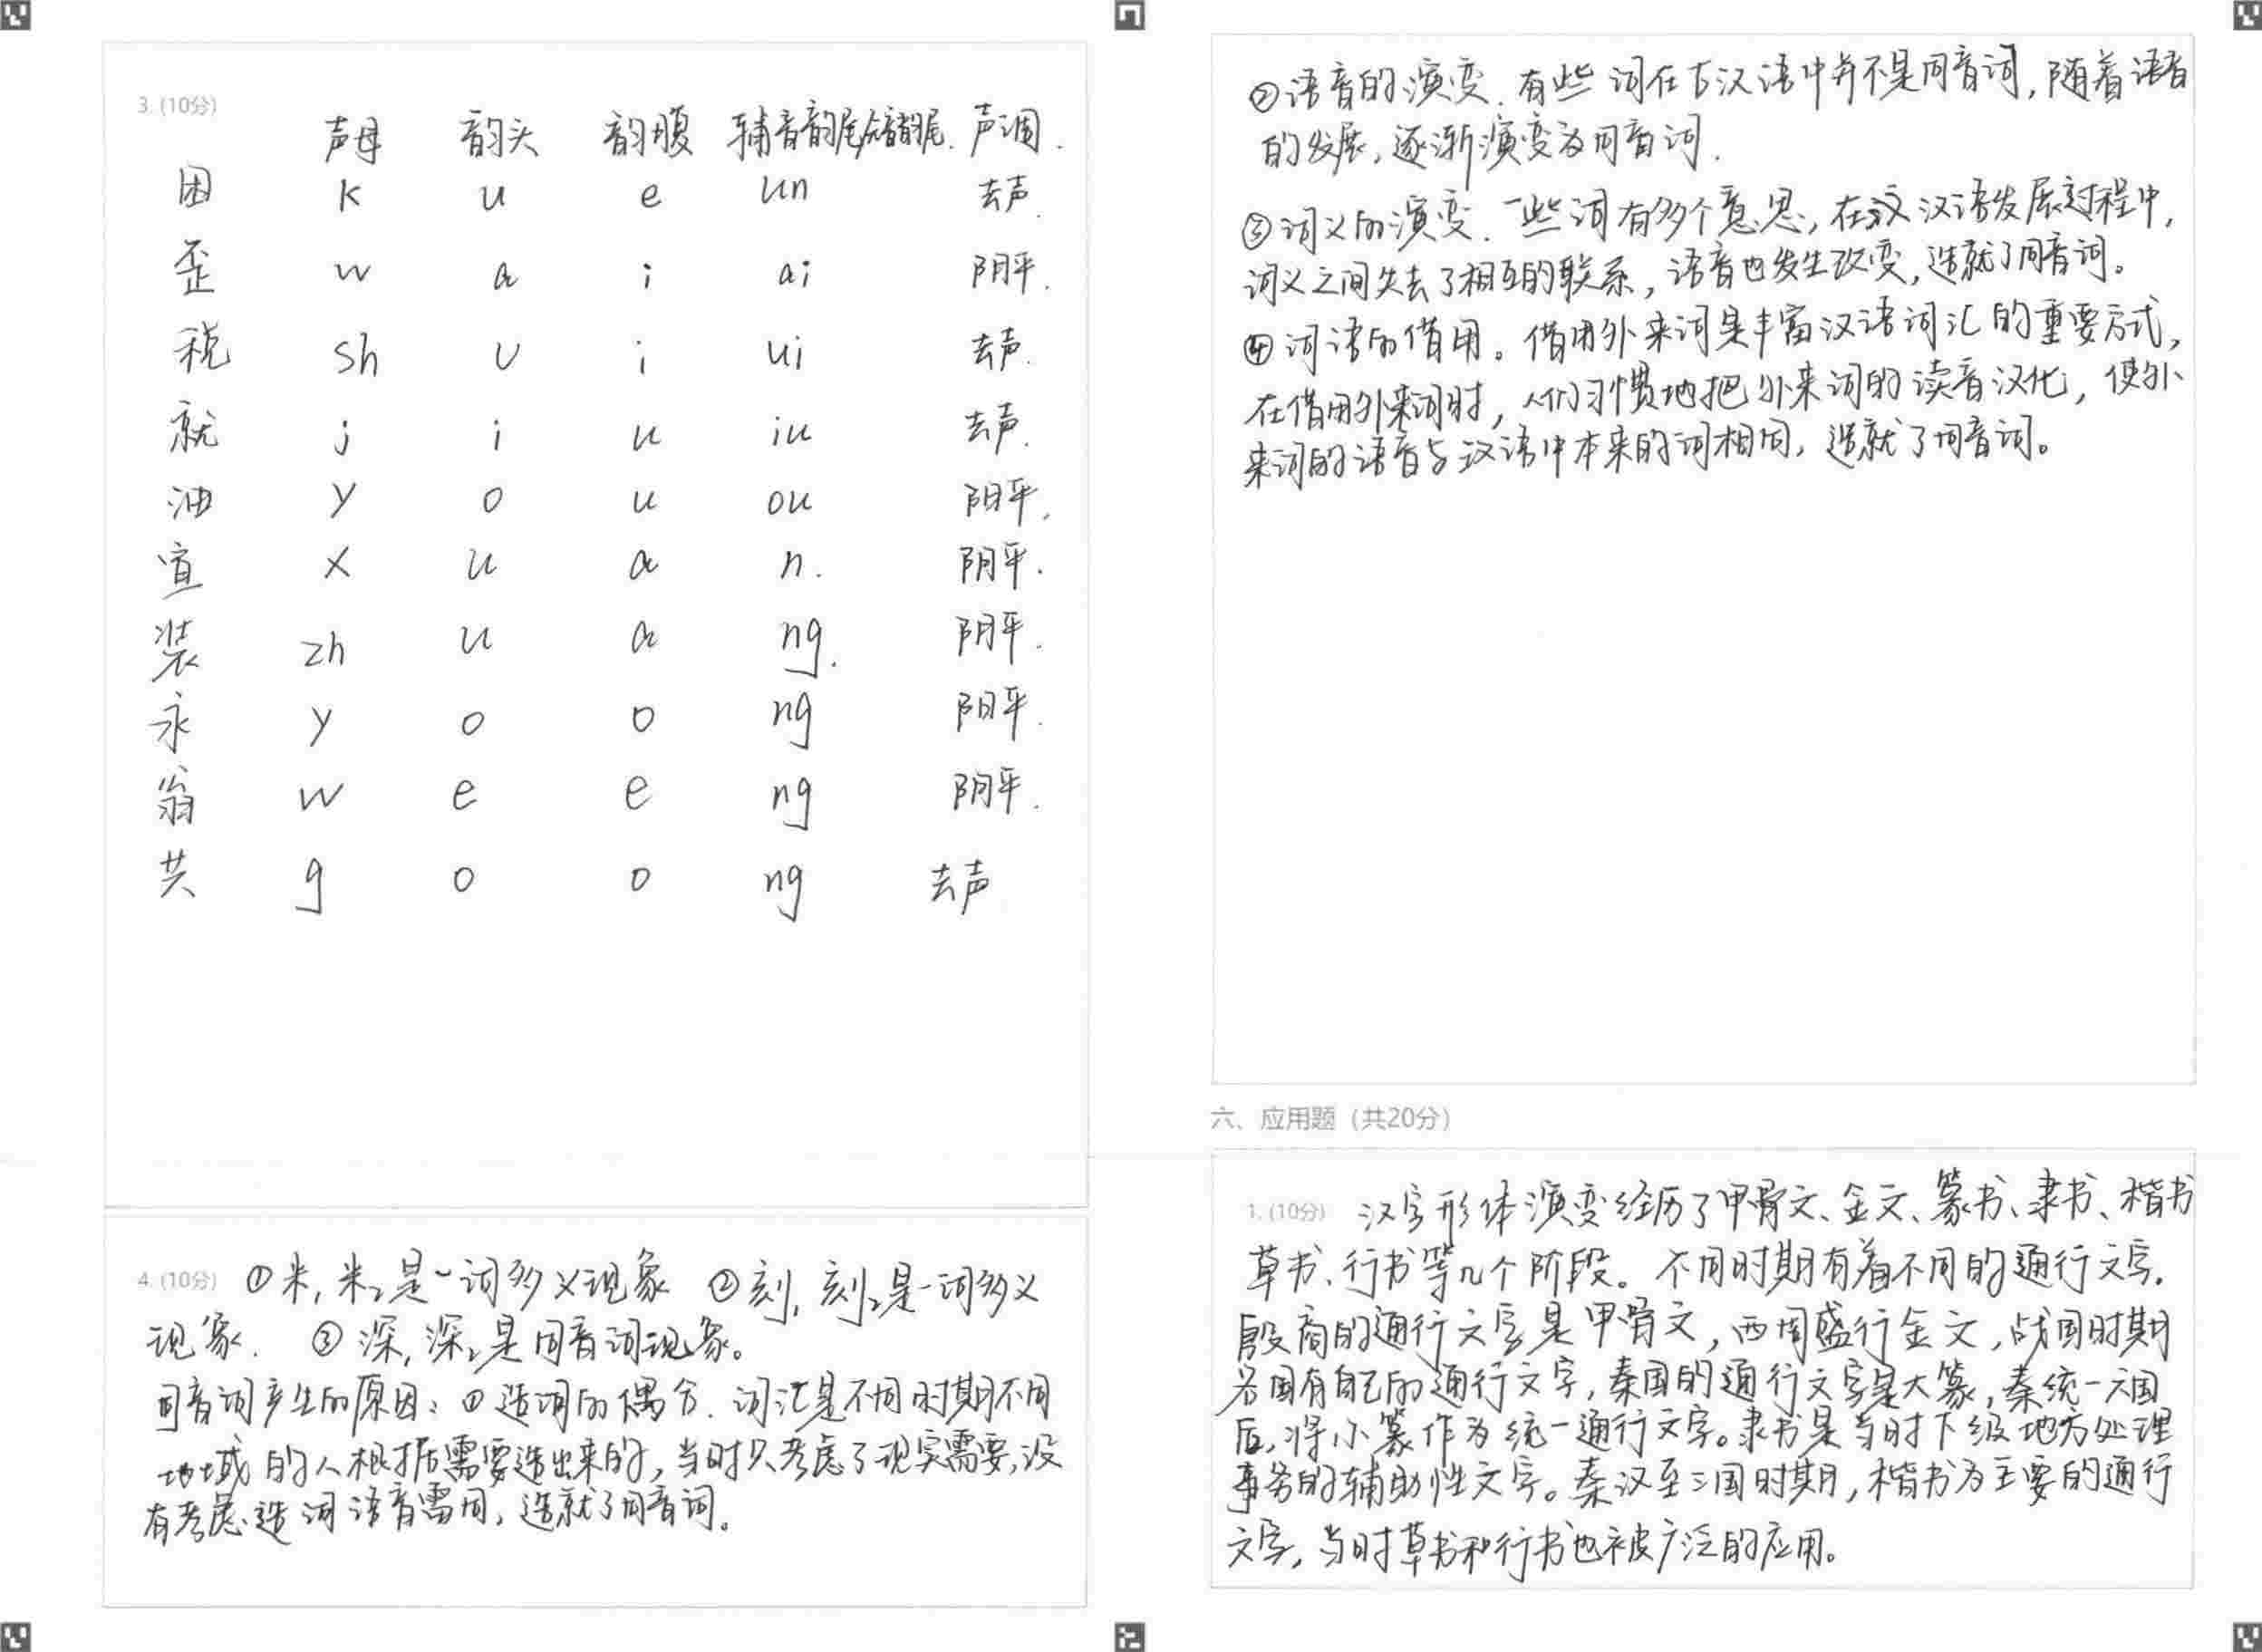 3. (10分)
声母 韵头 韵腹 辅音韵尾 声调.
困 k u e un 去声.
歪 w a i ai 阴平.
税 sh u i ui 去声.
就 j i u iu 去声.
油 y o u ou 阴平.
宣 x u a n. 阴平.
装 zh u a ng. 阴平.
永 y o o ng 阴平.
翁 w e e ng 阴平.
共 g o o ng 去声
4. (10分) ①米₁米₂是一词多义现象 ②刻₁刻₂是一词多义
现象. ③深₁深₂是同音词现象。
同音词产生的原因: ①造词的偶合. 词汇是不同时期不同
地域的人根据需要造出来的, 当时只考虑了现实需要, 没
有考虑造词语音雷同, 造就了同音词。
②语音的演变. 有些词在古汉语中并不是同音词, 随着语音
的发展, 逐渐演变为同音词.
③词义的演变. 一些词有多个意思, 在汉语发展过程中,
词义之间失去了相互的联系, 语音也发生改变, 造就了同音词。
④词语的借用。借用外来词是丰富汉语词汇的重要方式,
在借用外来词时, 人们习惯地把外来词的读音汉化, 使外
来词的语音与汉语中本来的词相同, 造就了同音词。
六、应用题（共20分）
1. (10分) 汉字形体演变经历了甲骨文、金文、篆书、隶书、楷书
草书、行书等几个阶段。不同时期有着不同的通行文字.
殷商的通行文字是甲骨文, 西周盛行金文, 战国时期
各国有自己的通行文字, 秦国的通行文字是大篆, 秦统一六国
后, 将小篆作为统一通行文字。隶书是当时下级地方处理
事务的辅助性文字。秦汉至三国时期, 楷书为主要的通行
文字, 当时草书和行书也被广泛的应用。